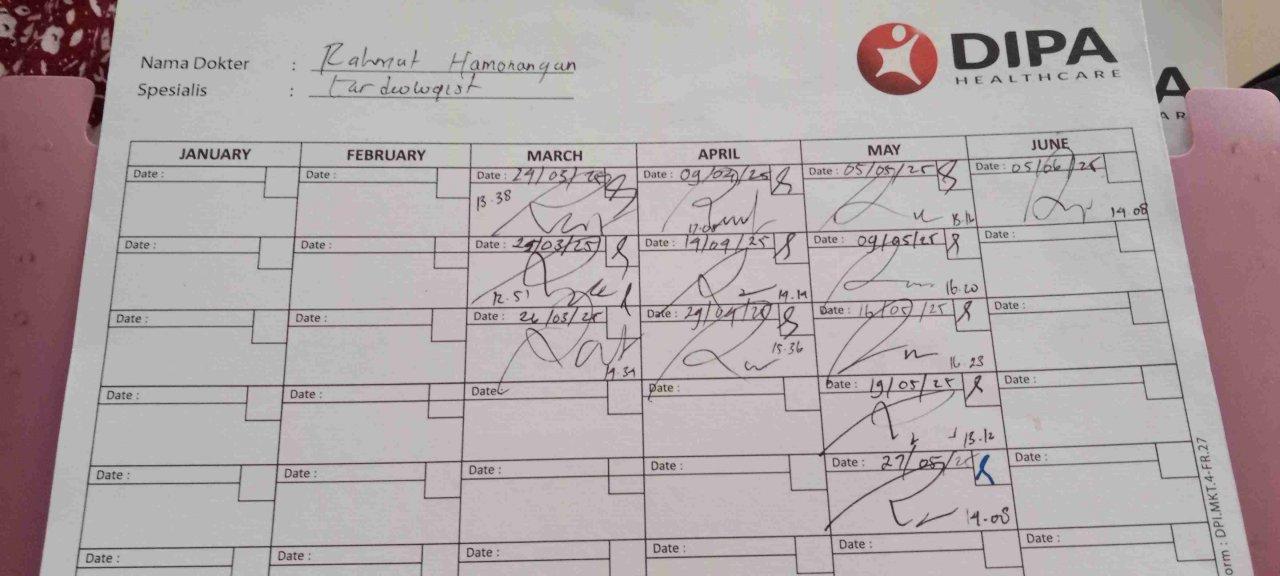 DIPA
HEALTHCARE
Nama Dokter : Rahmat Hamonangan
Spesialis : Cardiologist
JANUARY FEBRUARY MARCH APRIL MAY JUNE
Date : Date : Date : /03/25 Date : 09/04/25 Date : 05/05/25 Date : 05/06/25
13.38 13.12 14.08
Date : Date : Date : /03/25 Date : 19/04/25 Date : 09/05/25 Date :
12.51 16.20
Date : Date : Date : 26/03/25 Date : 29/04/25 Date : 16/05/25 Date :
15.36 16.23
Date : Date : Date : Date : Date : 19/05/25 Date :
13.12
Date : Date : Date : Date : Date : 27/05/25 Date :
14.08
Date : Date : Date : Date : Date : Date :
orm : DPI.MKT.4-FR.27